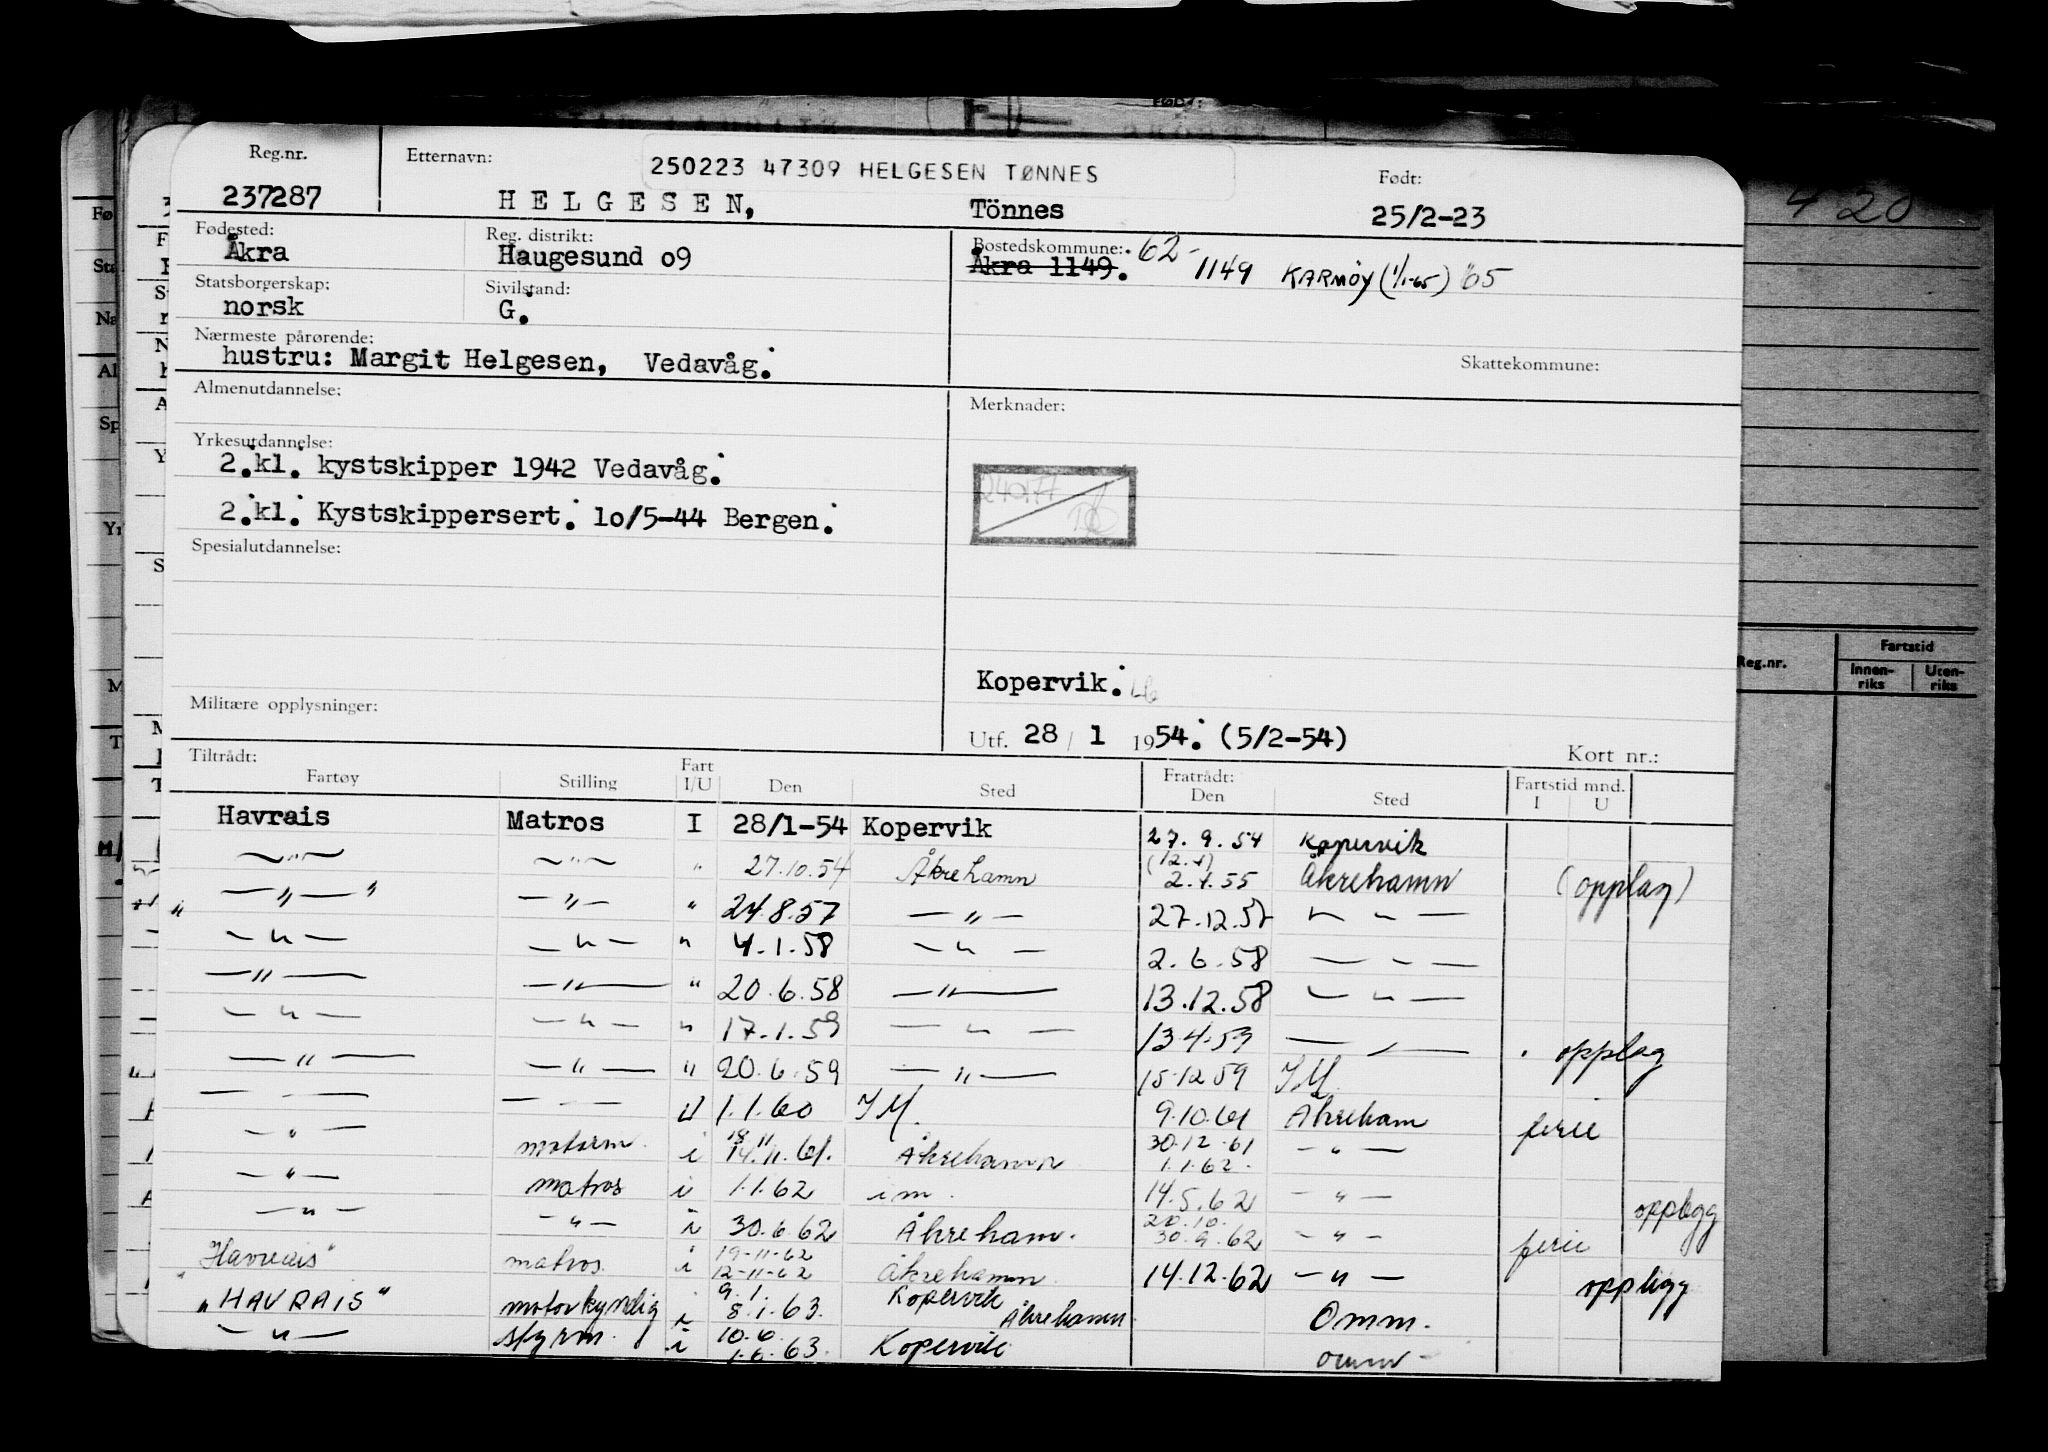 Reg.nr. Etternavn: 250223 47309 HELGESEN TØNNES Født:
237287 HELGESEN, Tönnes 25/2-23
Fødested: Reg. distrikt: Bostedskommune: 62-
Åkra Haugesund o9 Åkra 1149. 1149 KARMØY (1/1-65) 65
Statsborgerskap: Sivilstand:
norsk G.
Nærmeste pårørende:
hustru: Margit Helgesen, Vedavåg. Skattekommune:
Almenutdannelse: Merknader:
Yrkesutdannelse:
2.kl. kystskipper 1942 Vedavåg.
2.kl. Kystskippersert. 1o/5-44 Bergen.
Spesialutdannelse:
Kopervik.
Militære opplysninger:
Utf. 28 / 1 1954. (5/2-54)
Kort nr.:
Tiltrådt: Fart Fratrådt: Fartstid mnd.
Fartøy Stilling I/U Den Sted Den Sted I U
Havrais Matros I 28/1-54 Kopervik 27.9.54 Kopervik
—"— —"— " 27.10.54 Åkrehamn (12.4) 2.4.55 Åkrehamn (opplag)
" —"— " —"— " 24.8.57 —"— 27.12.57 —"—
—"— —"— " 4.1.58 —"— 2.6.58 —"—
—"— —"— " 20.6.58 —"— 13.12.58 —"—
—"— —"— " 17.1.59 —"— 13.4.59 —"— opplag
—"— —"— " 20.6.59 —"— 15.12.59 IM
—"— —"— 1.1.60 IM. 9.10.61 Åkreham ferie
—"— motorm. i 18 11 14.11.61. Åkrehamn 30.12.61 1.1.62. —"—
—"— matros i 1.1.62 im. 14.5.62 —"— opplegg
—"— —"— i 30.6.62 Åkreham. 20.10. 30.9.62 —"— ferie
"Havrais" matros i 19-11-62 12-11-62 Åkrehamn 14.12.62 —"— opplegg
"HAVRAIS" motorkyndig i 9.1. 8.1.63. Kopervik Åkrehamn Omm.
—"— styrm. i 10.6. 1.6.63. Kopervik omm-
Reg.nr. Fartstid
Innen-riks Uten-riks